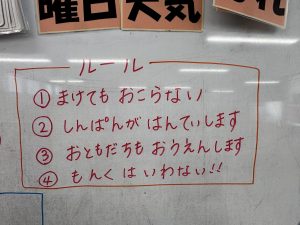 曜日天気
ルール
① まけても おこらない
② しんぱんが はんてぃします
③ おともだちも おうえんします
④ もんく は いわない!!